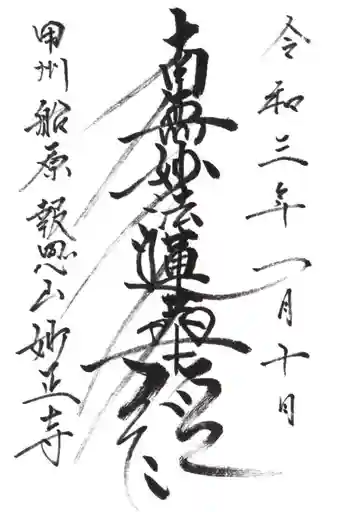 令和三年一月十日
南無妙法蓮華経
甲州 船原 報恩山 妙正寺